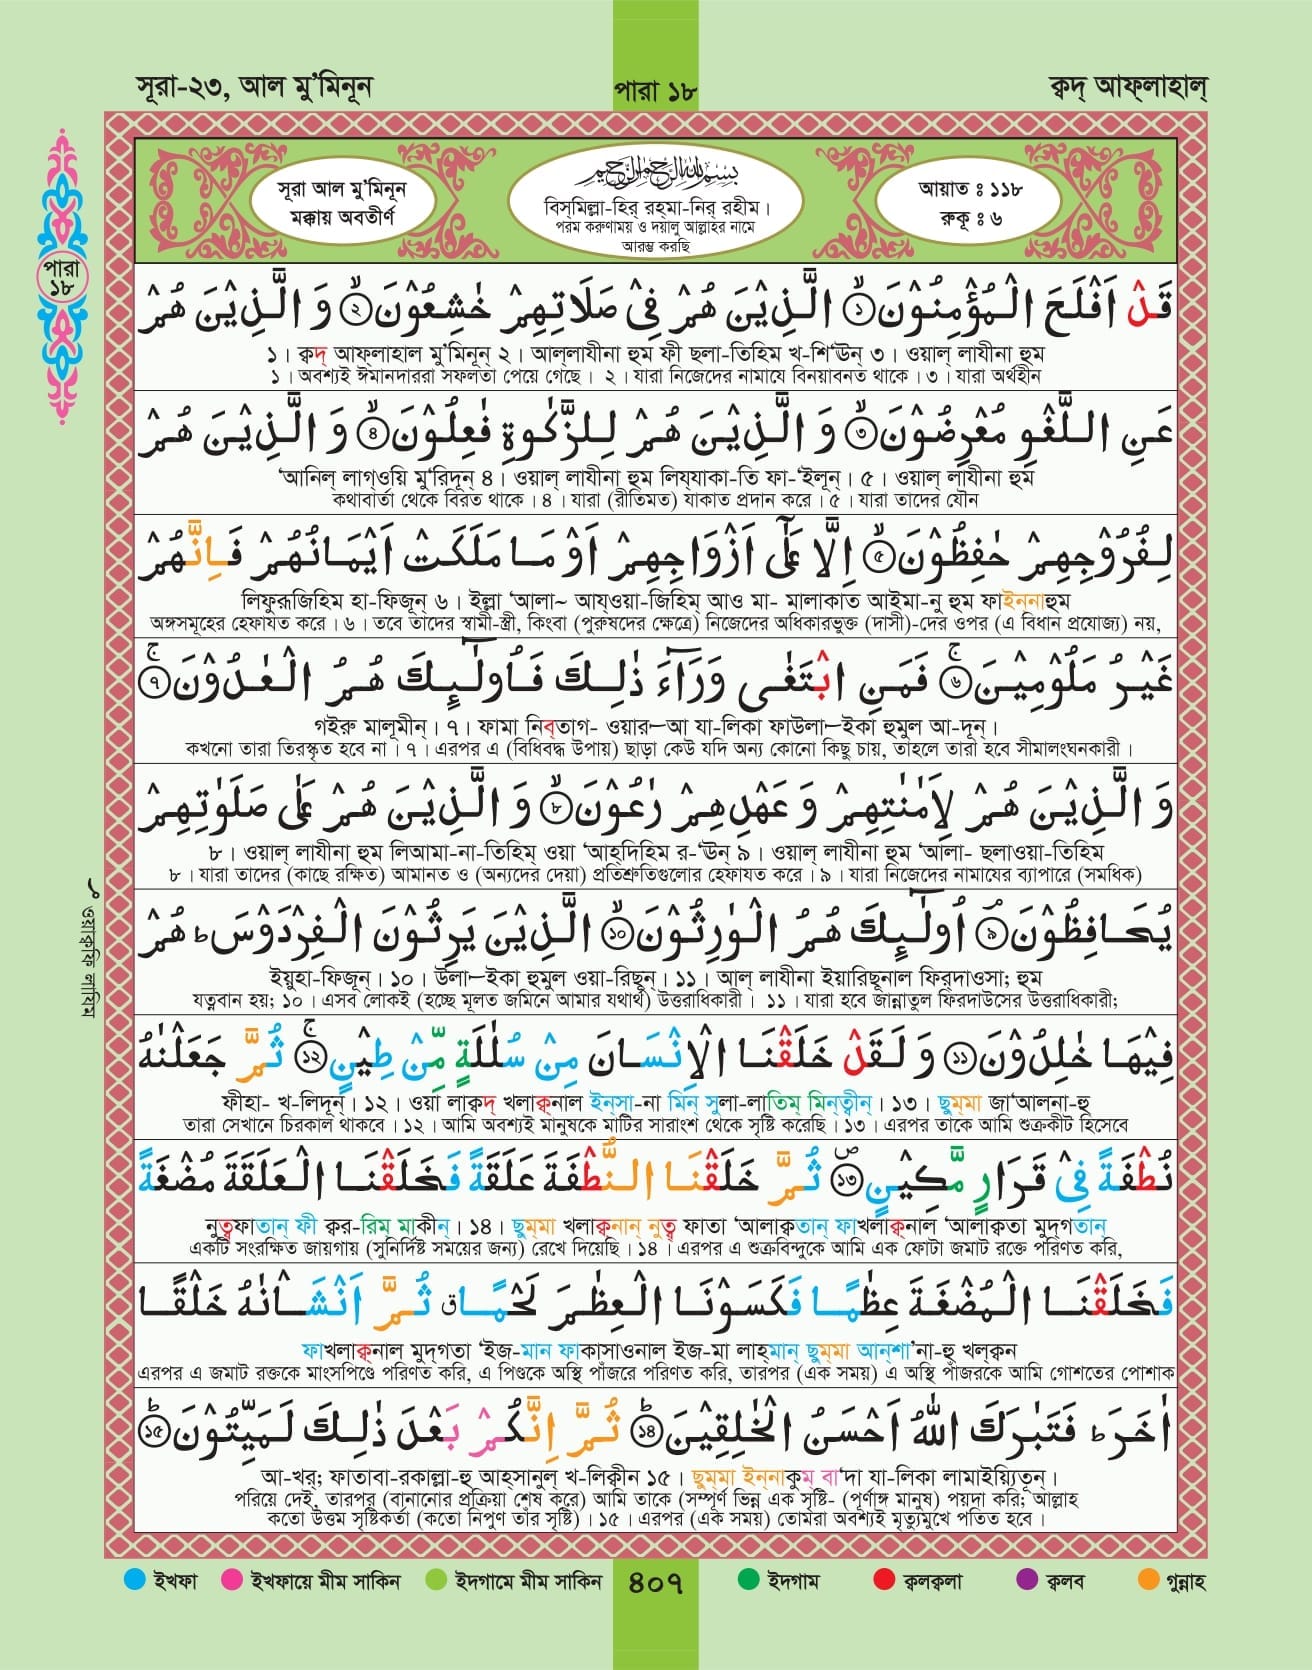 সূরা-২৩, আল মু’মিনূন
পারা ১৮
ক্বদ্ আফ্‌লাহাল্
পারা
১৮
সূরা আল মু’মিনূন
মক্কায় অবতীর্ণ
بِسْمِ اللهِ الرَّحْمٰنِ الرَّحِيْمِ
বিস্‌মিল্লা-হির্ রহ্‌মা-নির্ রহীম।
পরম করুণাময় ও দয়ালু আল্লাহর নামে
আরম্ভ করছি
আয়াত ঃ ১১৮
রুকূ ঃ ৬
قَدْ اَفْلَحَ الْمُؤْمِنُوْنَ ۙ﴿১﴾ الَّذِيْنَ هُمْ فِيْ صَلَاتِهِمْ خٰشِعُوْنَ ۙ﴿২﴾ وَ الَّذِيْنَ هُمْ
১। ক্বদ্ আফ্‌লাহাল মু’মিনূন্ ২। আল্‌লাযীনা হুম ফী ছলা-তিহিম খ-শি‘ঊন্ ৩। ওয়াল্ লাযীনা হুম
১। অবশ্যই ঈমানদাররা সফলতা পেয়ে গেছে। ২। যারা নিজেদের নামাযে বিনয়াবনত থাকে। ৩। যারা অর্থহীন
عَنِ اللَّغْوِ مُعْرِضُوْنَ ۙ﴿৩﴾ وَ الَّذِيْنَ هُمْ لِلزَّكٰوةِ فٰعِلُوْنَ ۙ﴿৪﴾ وَ الَّذِيْنَ هُمْ
‘আনিল্ লাগ্‌ওয়ি মু‘রিদূন্ ৪। ওয়াল্ লাযীনা হুম লিয্‌যাকা-তি ফা-‘ইলূন্। ৫। ওয়াল্ লাযীনা হুম
কথাবার্তা থেকে বিরত থাকে। ৪। যারা (রীতিমত) যাকাত প্রদান করে। ৫। যারা তাদের যৌন
لِفُرُوْجِهِمْ حٰفِظُوْنَ ۙ﴿৫﴾ اِلَّا عَلٰٓى اَزْوَاجِهِمْ اَوْ مَا مَلَكَتْ اَيْمَانُهُمْ فَاِنَّهُمْ
লিফুরূজিহিম হা-ফিজূন্ ৬। ইল্লা ‘আলা~ আয্‌ওয়া-জিহিম্ আও মা- মালাকাত আইমা-নু হুম ফাইন্‌নাহুম
অঙ্গসমূহের হেফাযত করে। ৬। তবে তাদের স্বামী-স্ত্রী, কিংবা (পুরুষদের ক্ষেত্রে) নিজেদের অধিকারভুক্ত (দাসী)-দের ওপর (এ বিধান প্রযোজ্য) নয়,
غَيْرُ مَلُوْمِيْنَ ۚ﴿৬﴾ فَمَنِ ابْتَغٰى وَرَآءَ ذٰلِكَ فَاُولٰٓئِكَ هُمُ الْعٰدُوْنَ ۚ﴿৭﴾
গইরু মালূমীন্। ৭। ফামা নিব্‌তাগ- ওয়ার—আ যা-লিকা ফাউলা—ইকা হুমুল আ-দূন্।
কখনো তারা তিরস্কৃত হবে না। ৭। এরপর এ (বিধিবদ্ধ উপায়) ছাড়া কেউ যদি অন্য কোনো কিছু চায়, তাহলে তারা হবে সীমালংঘনকারী।
وَ الَّذِيْنَ هُمْ لِاَمٰنٰتِهِمْ وَ عَهْدِهِمْ رٰعُوْنَ ۙ﴿৮﴾ وَ الَّذِيْنَ هُمْ عَلٰى صَلَوٰتِهِمْ
৮। ওয়াল্ লাযীনা হুম লিআমা-না-তিহিম্ ওয়া ‘আহ্‌দিহিম র-‘ঊন্ ৯। ওয়াল্ লাযীনা হুম ‘আলা- ছলাওয়া-তিহিম
৮। যারা তাদের (কাছে রক্ষিত) আমানত ও (অন্যদের দেয়া) প্রতিশ্রুতিগুলোর হেফাযত করে। ৯। যারা নিজেদের নামাযের ব্যাপারে (সমধিক)
يُحَافِظُوْنَ ۘ﴿৯﴾ اُولٰٓئِكَ هُمُ الْوٰرِثُوْنَ ۙ﴿১০﴾ الَّذِيْنَ يَرِثُوْنَ الْفِرْدَوْسَ ؕ هُمْ
ইয়ুহা-ফিজূন্। ১০। উলা—ইকা হুমুল ওয়া-রিছূন্। ১১। আল্ লাযীনা ইয়ারিছূনাল ফির্‌দাওসা; হুম
যত্নবান হয়; ১০। এসব লোকই (হচ্ছে মূলত জমিনে আমার যথার্থ) উত্তরাধিকারী। ১১। যারা হবে জান্নাতুল ফিরদাউসের উত্তরাধিকারী;
ওয়াক্বফি লাযিম
فِيْهَا خٰلِدُوْنَ ﴿১১﴾ وَ لَقَدْ خَلَقْنَا الْاِنْسَانَ مِنْ سُلٰلَةٍ مِّنْ طِيْنٍ ۚ﴿১২﴾ ثُمَّ جَعَلْنٰهُ
ফীহা- খ-লিদূন্। ১২। ওয়া লাক্বদ্ খলাক্বনাল ইন্‌সা-না মিন্ সুলা-লাতিম্ মিন্‌ত্বীন্। ১৩। ছুম্‌মা জা‘আলনা-হু
তারা সেখানে চিরকাল থাকবে। ১২। আমি অবশ্যই মানুষকে মাটির সারাংশ থেকে সৃষ্টি করেছি। ১৩। এরপর তাকে আমি শুক্রকীট হিসেবে
نُطْفَةً فِيْ قَرَارٍ مَّكِيْنٍ ۪﴿১৩﴾ ثُمَّ خَلَقْنَا النُّطْفَةَ عَلَقَةً فَخَلَقْنَا الْعَلَقَةَ مُضْغَةً
নুত্বফাতান্ ফী ক্বর-রিম্ মাকীন্। ১৪। ছুম্‌মা খলাক্বনান্ নুত্ব ফাতা ‘আলাক্বতান্ ফাখলাক্বনাল্ ‘আলাক্বতা মুদ্‌গতান্
একটি সংরক্ষিত জায়গায় (সুনির্দিষ্ট সময়ের জন্য) রেখে দিয়েছি। ১৪। এরপর এ শুক্রবিন্দুকে আমি এক ফোটা জমাট রক্তে পরিণত করি,
فَخَلَقْنَا الْمُضْغَةَ عِظٰمًا فَكَسَوْنَا الْعِظٰمَ لَحْمًا ق ثُمَّ اَنْشَاْنٰهُ خَلْقًا
ফাখলাক্বনাল মুদ্‌গতা ‘ইজ-মান ফাকাসাওনাল ইজ-মা লাহ্‌মান্ ছুম্‌মা আন্‌শা’না-হু খল্‌ক্বন
এরপর এ জমাট রক্তকে মাংসপিণ্ডে পরিণত করি, এ পিণ্ডকে অস্থি পাঁজরে পরিণত করি, তারপর (এক সময়) এ অস্থি পাঁজরকে আমি গোশতের পোশাক
اٰخَرَ ؕ فَتَبٰرَكَ اللهُ اَحْسَنُ الْخٰلِقِيْنَ ؕ﴿১৪﴾ ثُمَّ اِنَّكُمْ بَعْدَ ذٰلِكَ لَمَيِّتُوْنَ ؕ﴿১৫﴾
আ-খর; ফাতাবা-রকাল্লা-হু আহ্‌সানুল্ খ-লিক্বীন ১৫। ছুম্‌মা ইন্‌নাকুম্ বা‘দা যা-লিকা লামাইয়্যিতূন্।
পরিয়ে দেই, তারপর (বানানোর প্রক্রিয়া শেষ করে) আমি তাকে (সম্পূর্ণ ভিন্ন এক সৃষ্টি- (পূর্ণাঙ্গ মানুষ) পয়দা করি; আল্লাহ
কতো উত্তম সৃষ্টিকর্তা (কতো নিপুণ তাঁর সৃষ্টি)। ১৫। এরপর (এক সময়) তোমরা অবশ্যই মৃত্যুমুখে পতিত হবে।
ইখফা ইখফায়ে মীম সাকিন ইদগামে মীম সাকিন ৪০৭ ইদগাম ক্বলক্বলা ক্বলব গুন্নাহ